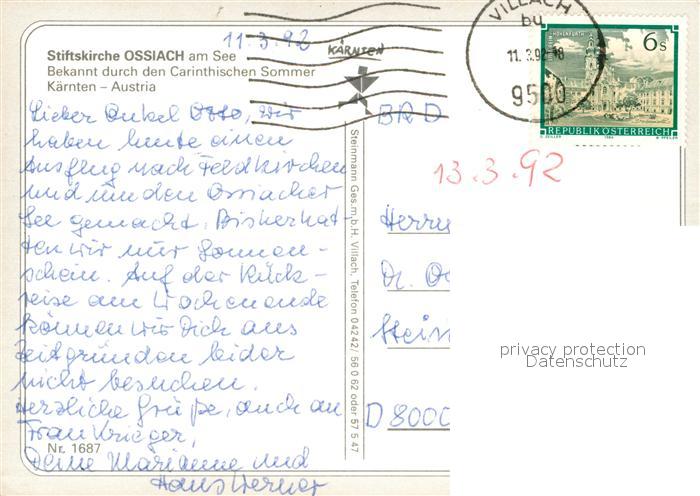 11.3.92
Stiftskirche OSSIACH am See
Bekannt durch den Carinthischen Sommer
Kärnten – Austria
Lieber Onkel Otto, wir
haben heute einen
Ausflug nach Feldkirchen
und um den Ossiacher
See gemacht. Bisher hat-
ten wir nur Sonnen-
schein. Auf der Rück-
reise am Wochenende
können wir Dich aus
Zeitgründen leider
nicht besuchen.
Herzliche Grüße, auch an
Frau Krieger,
Nr. 1687
Deine Marianne und
Hans Werner
KÄRNTEN
Steinmann Ges.m.b.H. Villach, Telefon 04242/ 56 0 62 oder 57 5 47
VILLACH
bu
11.3.92-18
9500
6s
REPUBLIK ÖSTERREICH
1984
BRD
13.3.92
Herrn
Dr.
Stein
D 8000
privacy protection
Datenschutz